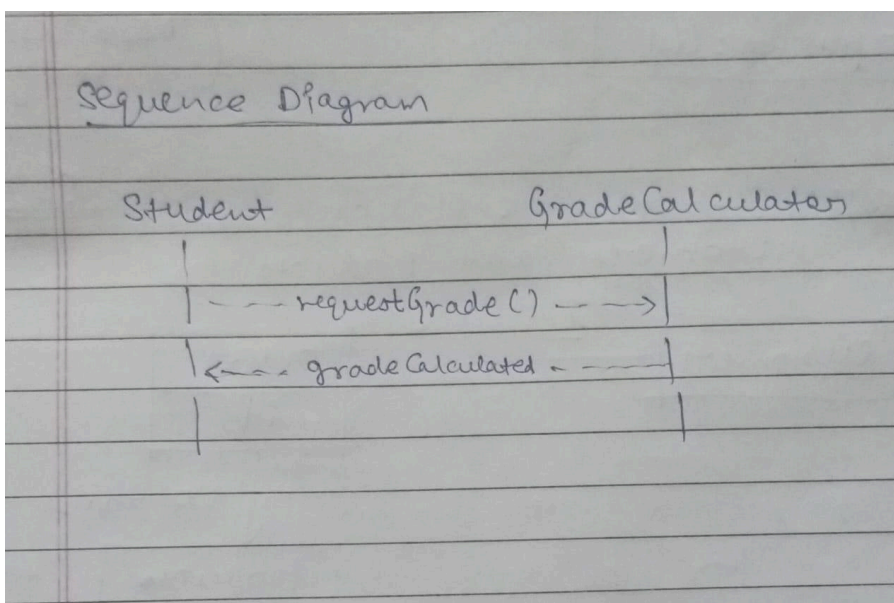 Sequence Diagram
Student GradeCalculator
requestGrade()
gradeCalculated